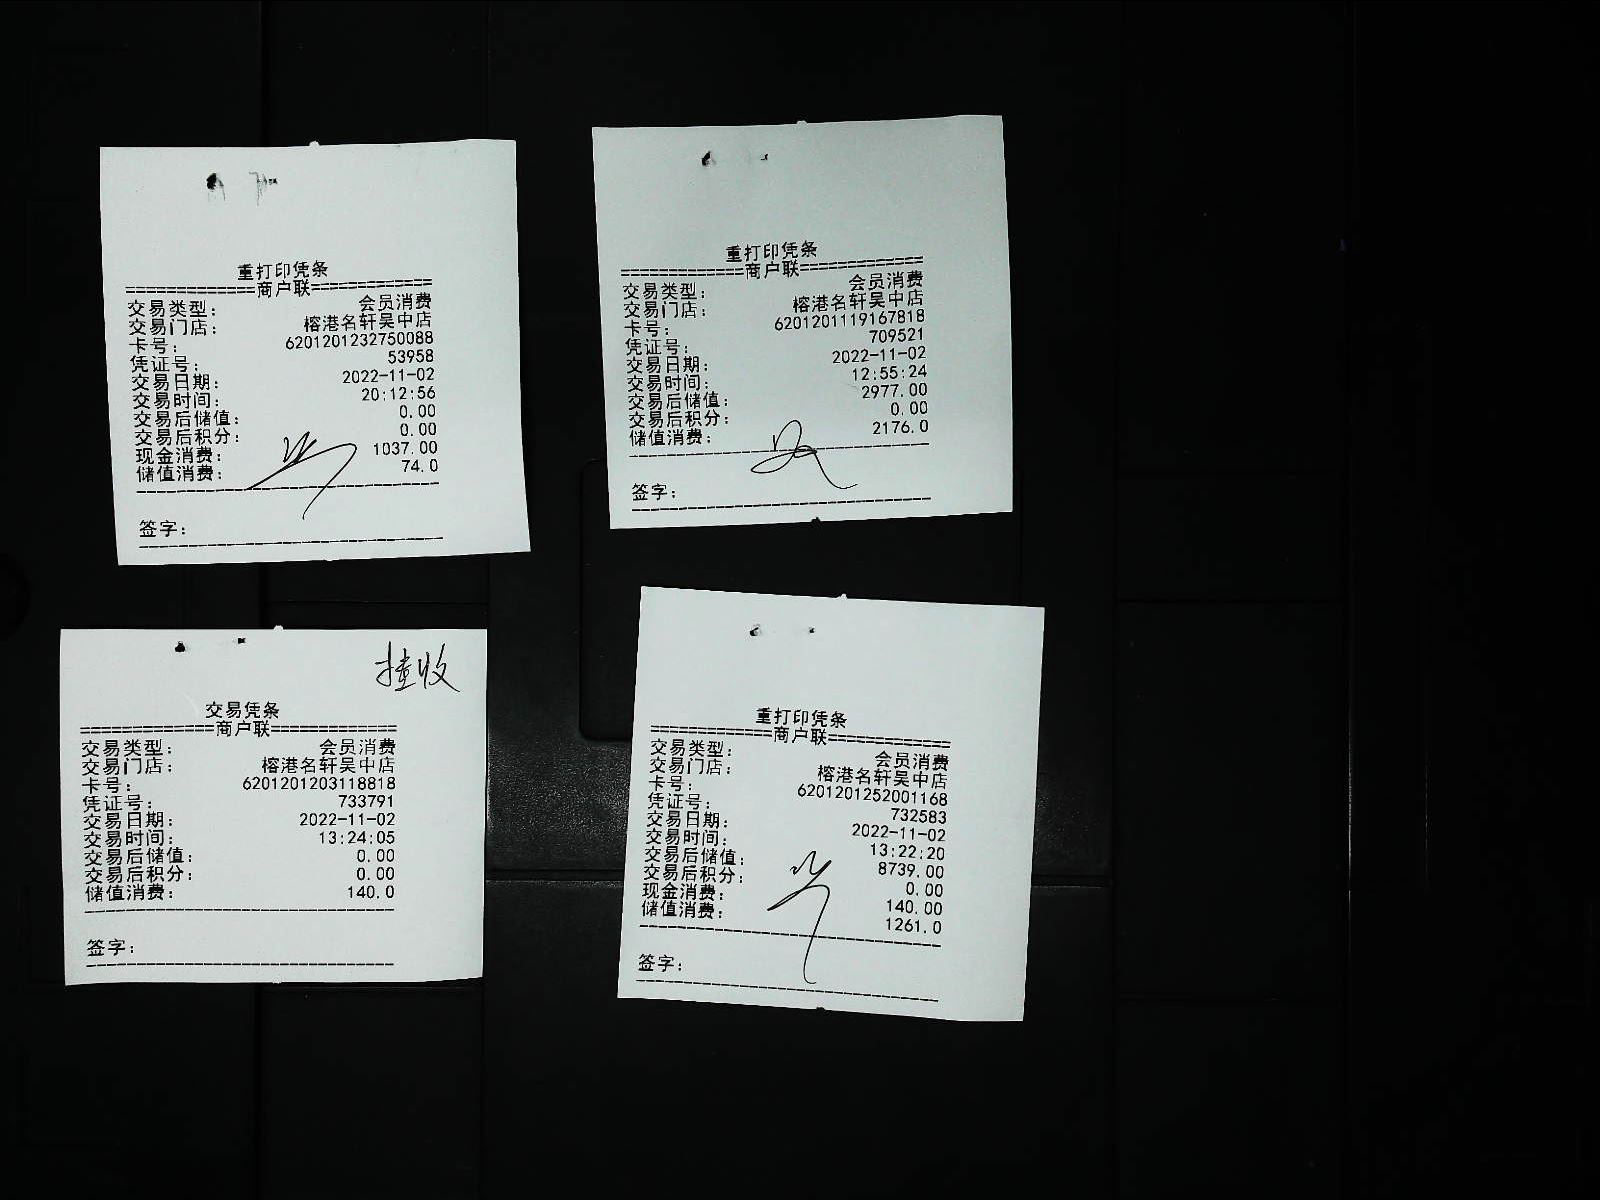 重打印凭条
=============商户联============
交易类型： 会员消费
交易门店： 榕港名轩吴中店
卡号： 6201201232750088
凭证号： 53958
交易日期： 2022-11-02
交易时间： 20:12:56
交易后储值： 0.00
交易后积分： 0.00
现金消费： 1037.00
储值消费： 74.0
签字：
重打印凭条
=============商户联============
交易类型： 会员消费
交易门店： 榕港名轩吴中店
卡号： 6201201119167818
凭证号： 709521
交易日期： 2022-11-02
交易时间： 12:55:24
交易后储值： 2977.00
交易后积分： 0.00
储值消费： 2176.0
签字：
挂收
交易凭条
=============商户联============
交易类型： 会员消费
交易门店： 榕港名轩吴中店
卡号： 6201201203118818
凭证号： 733791
交易日期： 2022-11-02
交易时间： 13:24:05
交易后储值： 0.00
交易后积分： 0.00
储值消费： 140.0
签字：
重打印凭条
=============商户联============
交易类型： 会员消费
交易门店： 榕港名轩吴中店
卡号： 6201201252001168
凭证号： 732583
交易日期： 2022-11-02
交易时间： 13:22:20
交易后储值： 8739.00
交易后积分： 0.00
现金消费： 140.00
储值消费： 1261.0
签字：